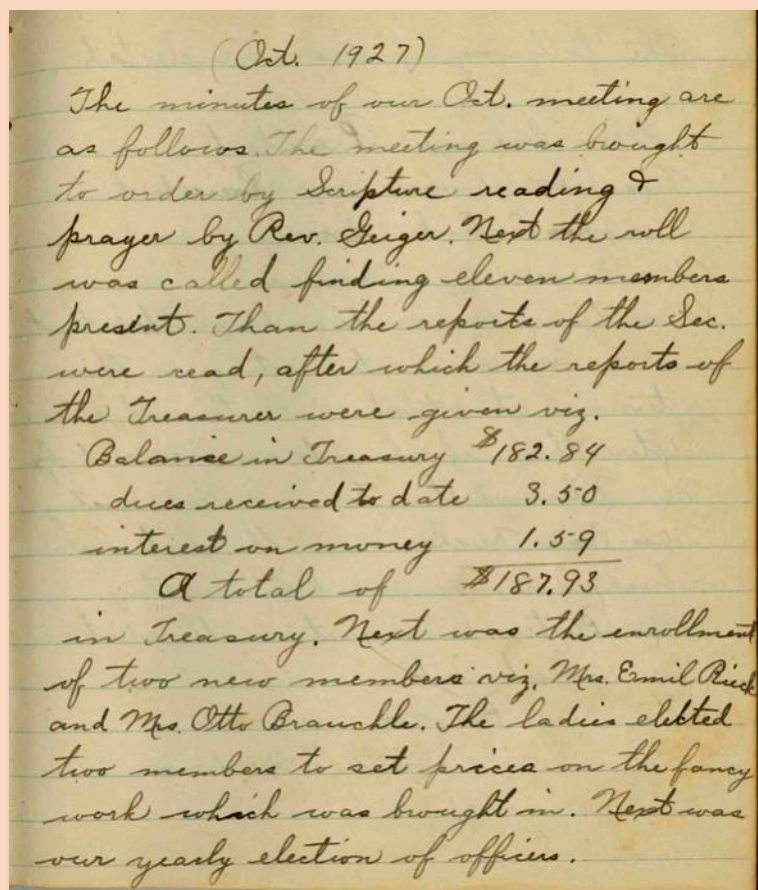 (Oct. 1927)
The minutes of our Oct. meeting are
as follows. The meeting was brought
to order by Scripture reading &
prayer by Rev. Geiger. Next the roll
was called finding eleven members
present. Than the reports of the Sec.
were read, after which the reports of
the Treasurer were given viz.
Balance in Treasury $182.84
dues received to date 3.50
interest on money 1.59
A total of $187.93
in Treasury. Next was the enrollment
of two new members viz. Mrs. Emil Rieck
and Mrs. Otto Brauchle. The ladies elected
two members to set prices on the fancy
work which was brought in. Next was
our yearly election of officers.